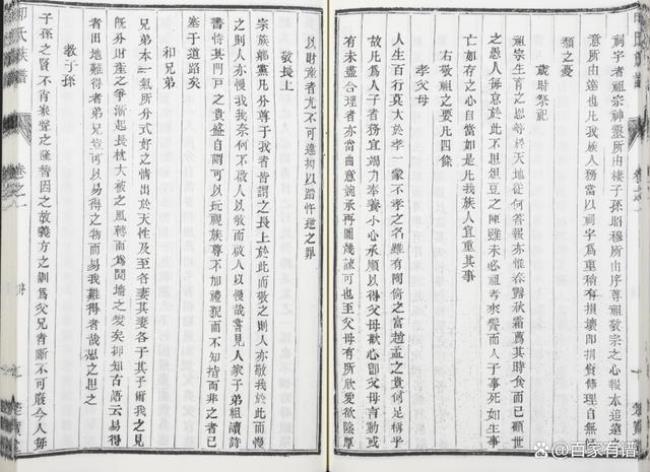 祠宇者祖宗神靈所由棲子孫昭穆所由序尊祖敬宗之心報本追遠之
意所由達也凡我族人務當以祠宇為重稍有損壞即捐貲修理自無
類之憂
歲時祭祀
祖宗生育之恩等於天地從何答報亦惟春露秋霜薦其時食而已顧世
之愚人每忽於此不思俎豆之陳雖未必祖考來饗而人子事死如生事
亡如存之心自當如是凡我族人宜重其事
右敬祖之要凡四條
孝父母
人生百行莫大於孝一蒙不孝之名雖有陶倚之富趙孟之貴何足稱乎
故凡為人子者務宜竭力奉養小心承順以得父母歡心即父母言動或
有未盡合理者亦當曲意婉承再圖幾諫可也至父母有所欣愛欲陰厚
以財產者尤不可違拗以蹈忤逆之罪
敬長上
宗族鄉黨凡分尊于我者皆謂之長上於此而敬之則人亦敬我於此而慢
之則人亦慢我我奈何不啟人以敬而啟人以慢哉嘗見人家子弟粗讀詩
書恃其門戶之貴盛自謂可以玩視族尊不加禮貌而不知指而非之者已
塞于道路矣
和兄弟
兄弟本一氣所分式好之情出於天性及至各妻其妻各子其子爾我之見
既分財產之爭漸起長枕大被之風轉而為鬩墻之變矣抑知古語云易得
者田地難得者弟兄豈可以易得之物而易我難得者哉思之思之
教子孫
子孫之賢不肖家聲之隆替因之故義方之訓為父兄者斷不可廢今人每
卷之一
百家有谱